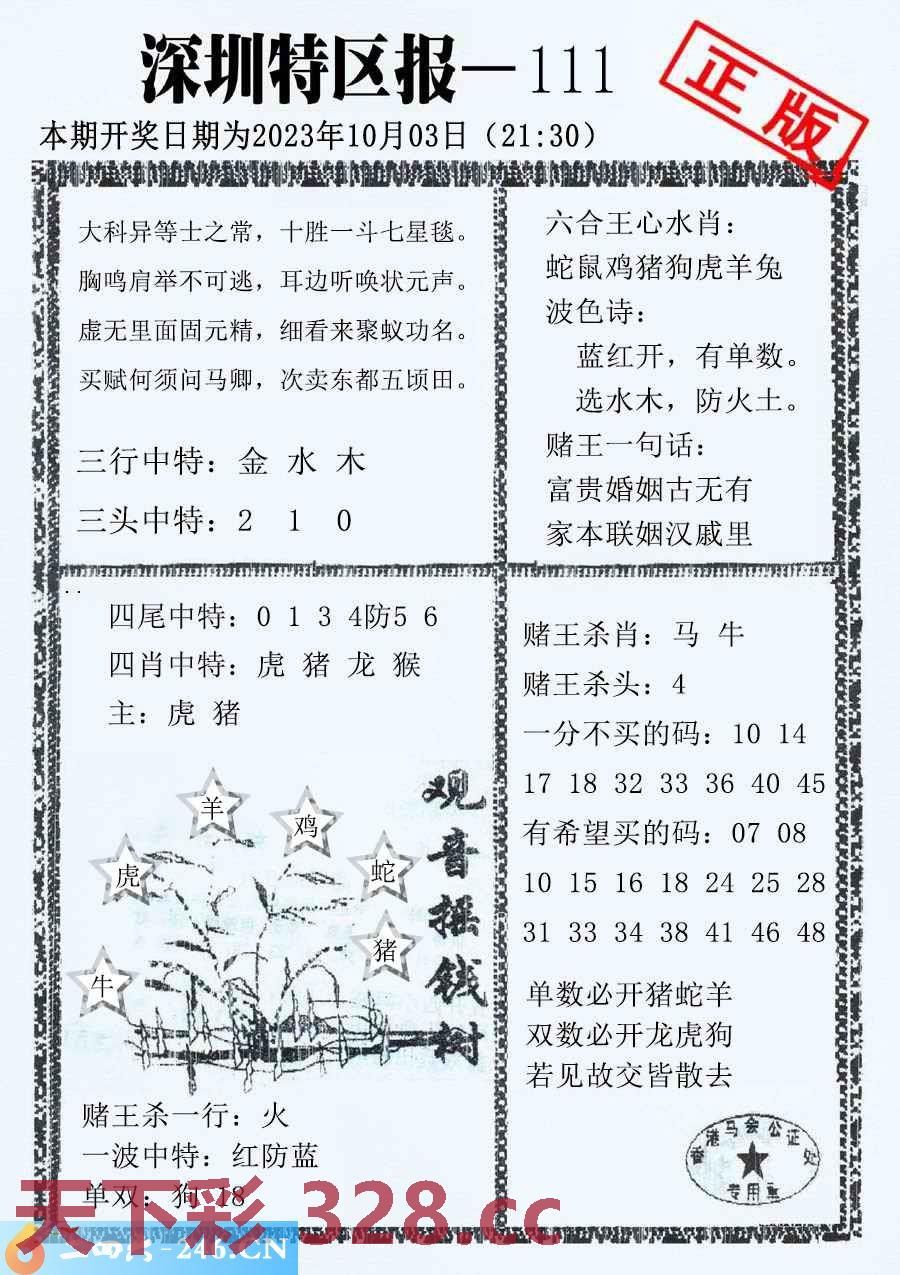 深圳特区报—111
正版
本期开奖日期为2023年10月03日（21:30）
大科异等士之常，十胜一斗七星毯。
胸鸣肩举不可逃，耳边听唤状元声。
虚无里面固元精，细看来聚蚁功名。
买赋何须问马卿，次卖东都五顷田。
三行中特：金 水 木
三头中特：2 1 0
六合王心水肖：
蛇鼠鸡猪狗虎羊兔
波色诗：
蓝红开，有单数。
选水木，防火土。
赌王一句话：
富贵婚姻古无有
家本联姻汉戚里
四尾中特：0 1 3 4防5 6
四肖中特：虎 猪 龙 猴
主：虎 猪
羊
鸡
虎
蛇
猪
牛
观音摇钱树
赌王杀一行：火
一波中特：红防蓝
单双：狗 18
赌王杀肖：马 牛
赌王杀头：4
一分不买的码：10 14
17 18 32 33 36 40 45
有希望买的码：07 08
10 15 16 18 24 25 28
31 33 34 38 41 46 48
单数必开猪蛇羊
双数必开龙虎狗
若见故交皆散去
香港马会公证处
专用章
天下彩 328.cc
-246.CN